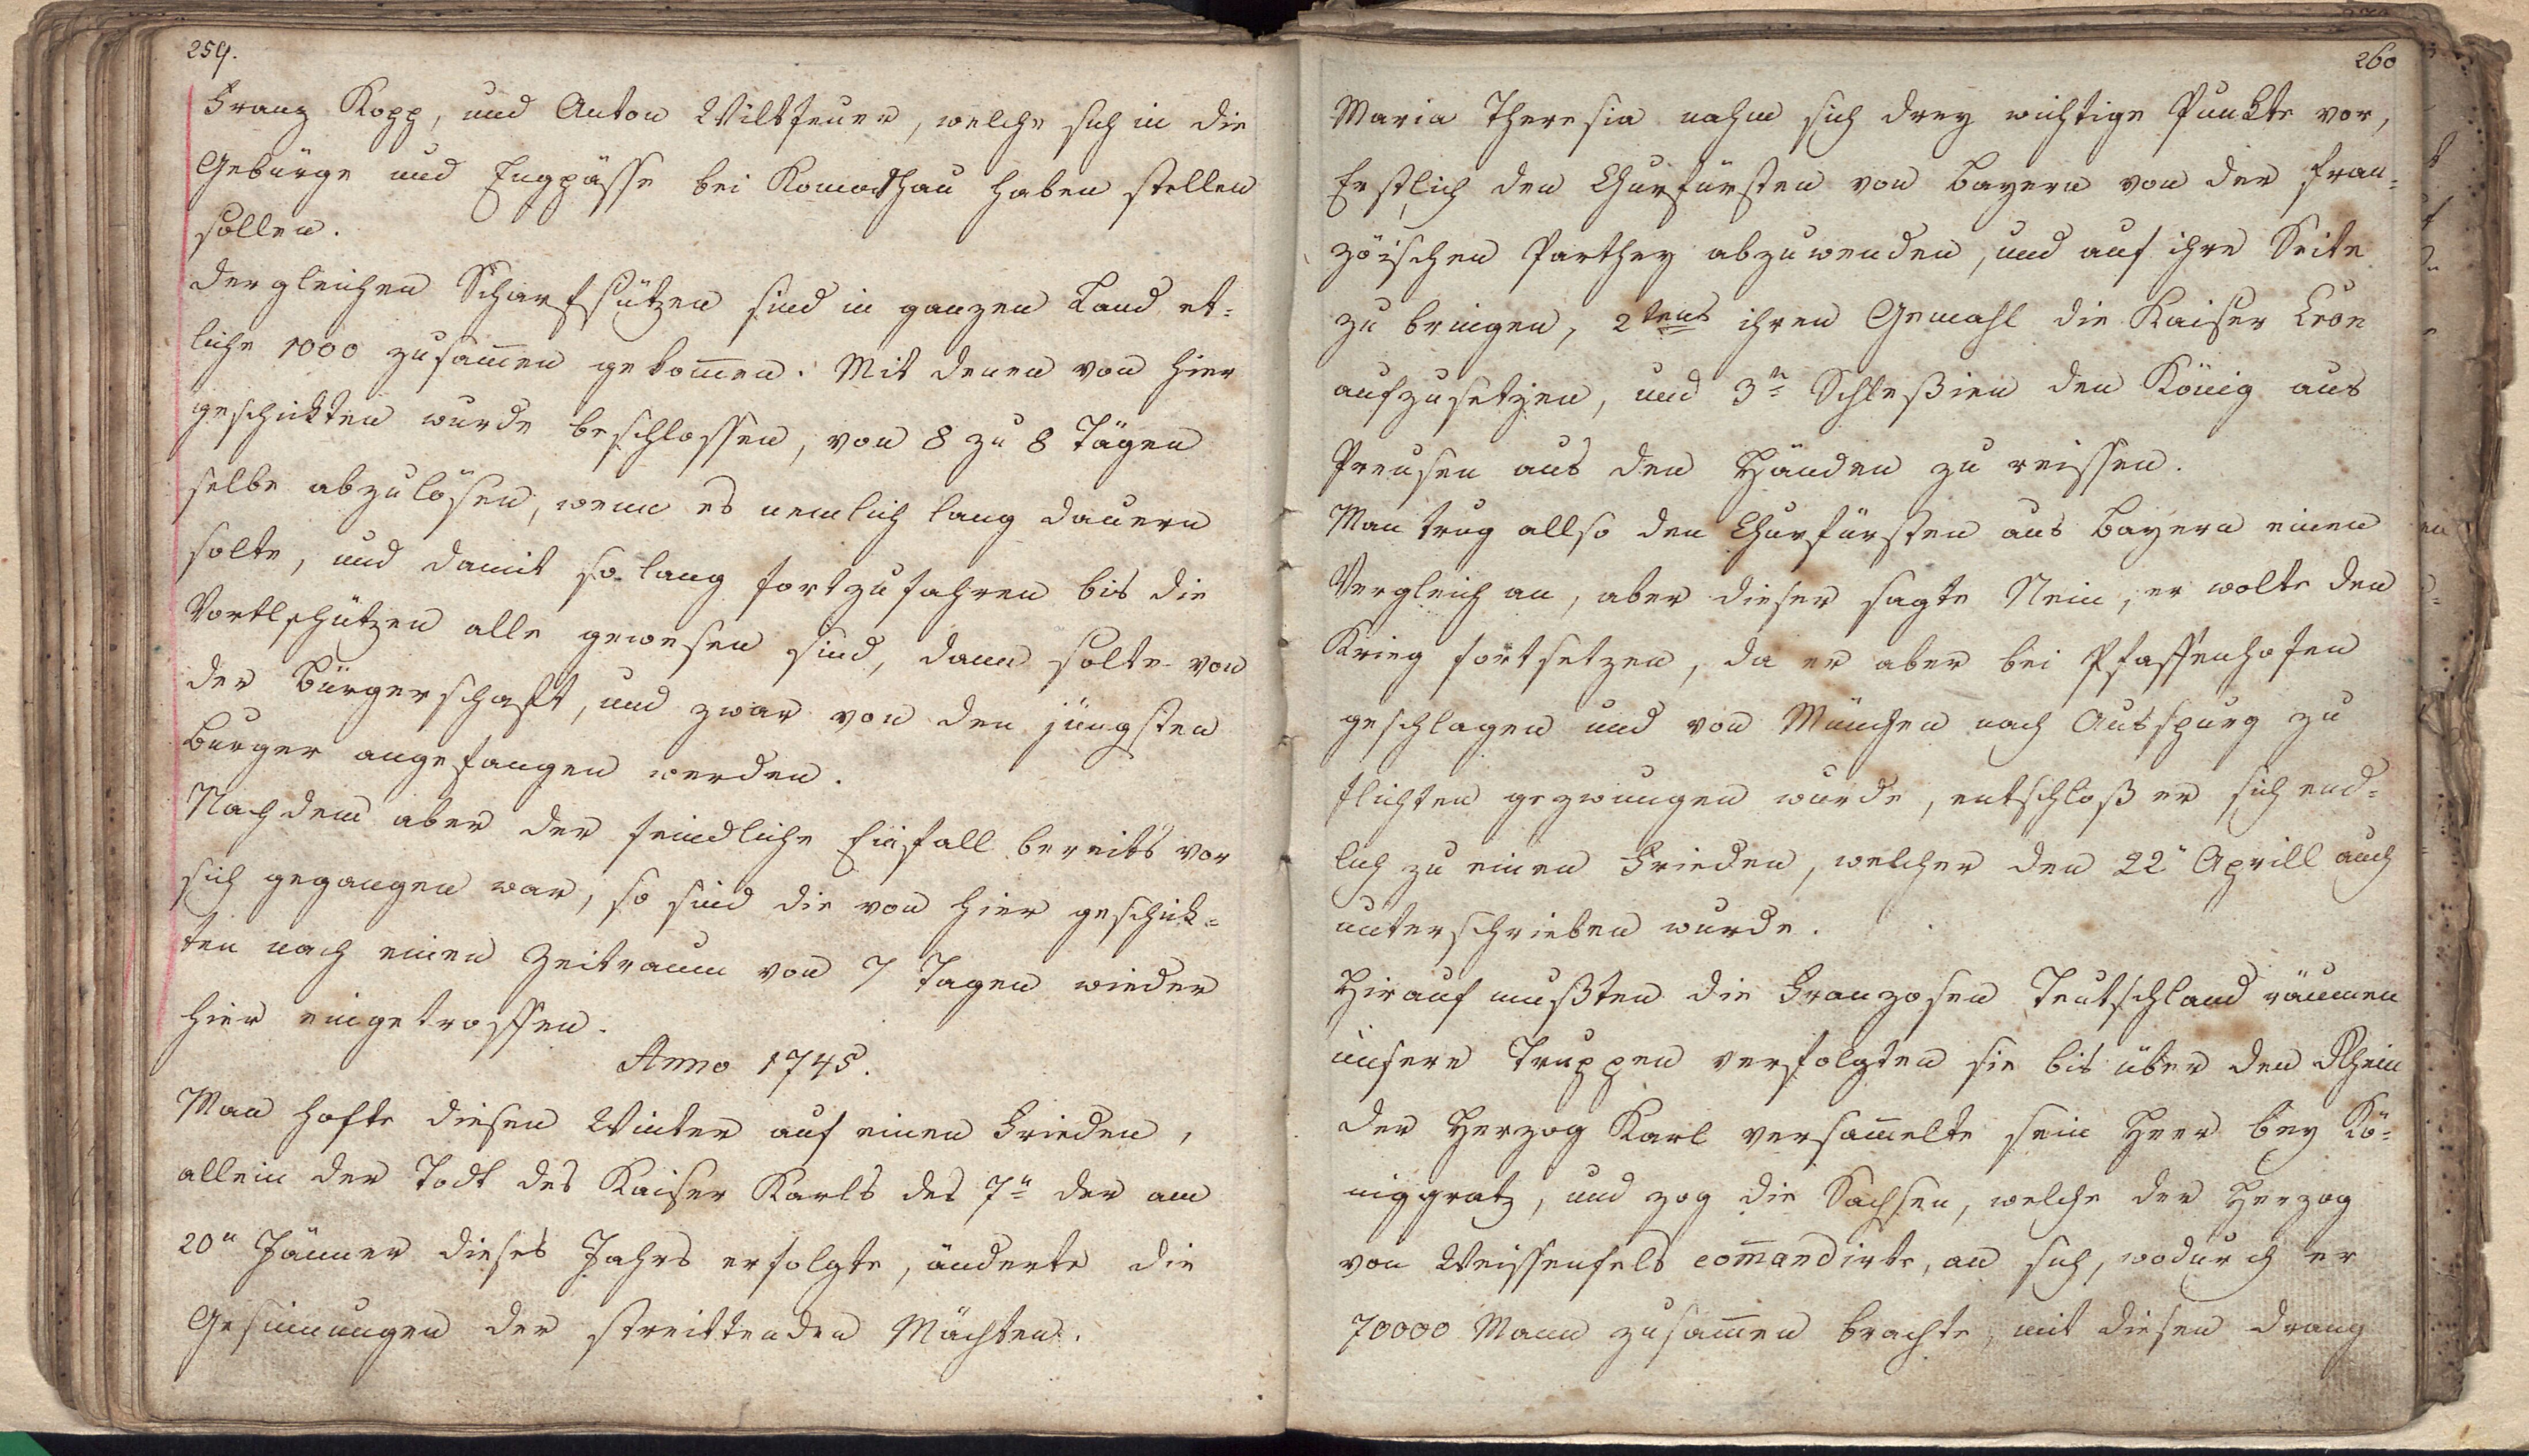 259.
Franz Kopp, und Anton Wiltfeuer, welche sich in die
Gebürge und Engpässe bei Komothau haben stellen
sollen.
dergleichen Scharfsützen sind in ganzen Land et-
liche 1000 zusam̄en gekom̄en. Mit denen von hier
geschickten wurde beschlossen, von 8 zu 8 Tägen
selbe abzulösen, wenn es nemlich lang dauern
solte, und damit so lang fortzufahren bis die
Vortlschützen alle gewesen sind, dann solte von
der Bürgerschaft, und zwar von den jüngsten
Burger angefangen werden.
Nachdem aber der feindliche Einfall bereits vor
sich gegangen war, so sind die von hier geschick-
ten nach einen Zeitraum von 7 Tagen wieder
hier eingetroffen.
Anno 1745.
Man hofte diesen Winter auf einen Frieden,
allein der Todt des Kaiser Karls des 7n der am
20n Jänner dieses Jahrs erfolgte, änderte die
Gesinnungen der streittenden Mächten.
260
Maria Theresia nahm sich drey wichtige Punkte vor,
Erstlich den Churfürsten von Bayern von der fran-
zöischen Parthey abzuwenden, und auf ihre Seite
zu bringen, 2tens ihren Gemahl die Kaiser Cron
aufzusetzen, und 3n Schleßien den König aus
Preusen aus den Händen zu reissen.
Man trug allso den Churfürsten aus Bayern einen
Vergleich an, aber dieser sagte Nein, er wolte den
Krieg fortsetzen, da er aber bei Pfaffenhofen
geschlagen und von München nach Autspurg zu
flichten gezwungen wurde, entschloß er sich end-
lich zu einen Frieden, welcher den 22n Aprill auch
unterschrieben wurde.
Hirauf mußten die Franzosen Teutschland räumen
unsere Truppen verfolgten sie bis über den Rhein
der Herzog Karl versam̄elte sein Heer bey Kö-
niggratz, und zog die Sachsen, welche der Herzog
von Weissenfels com̄andirte, an sich, wodurch er
70000 Mann zusam̄en brachte, mit diesen drang